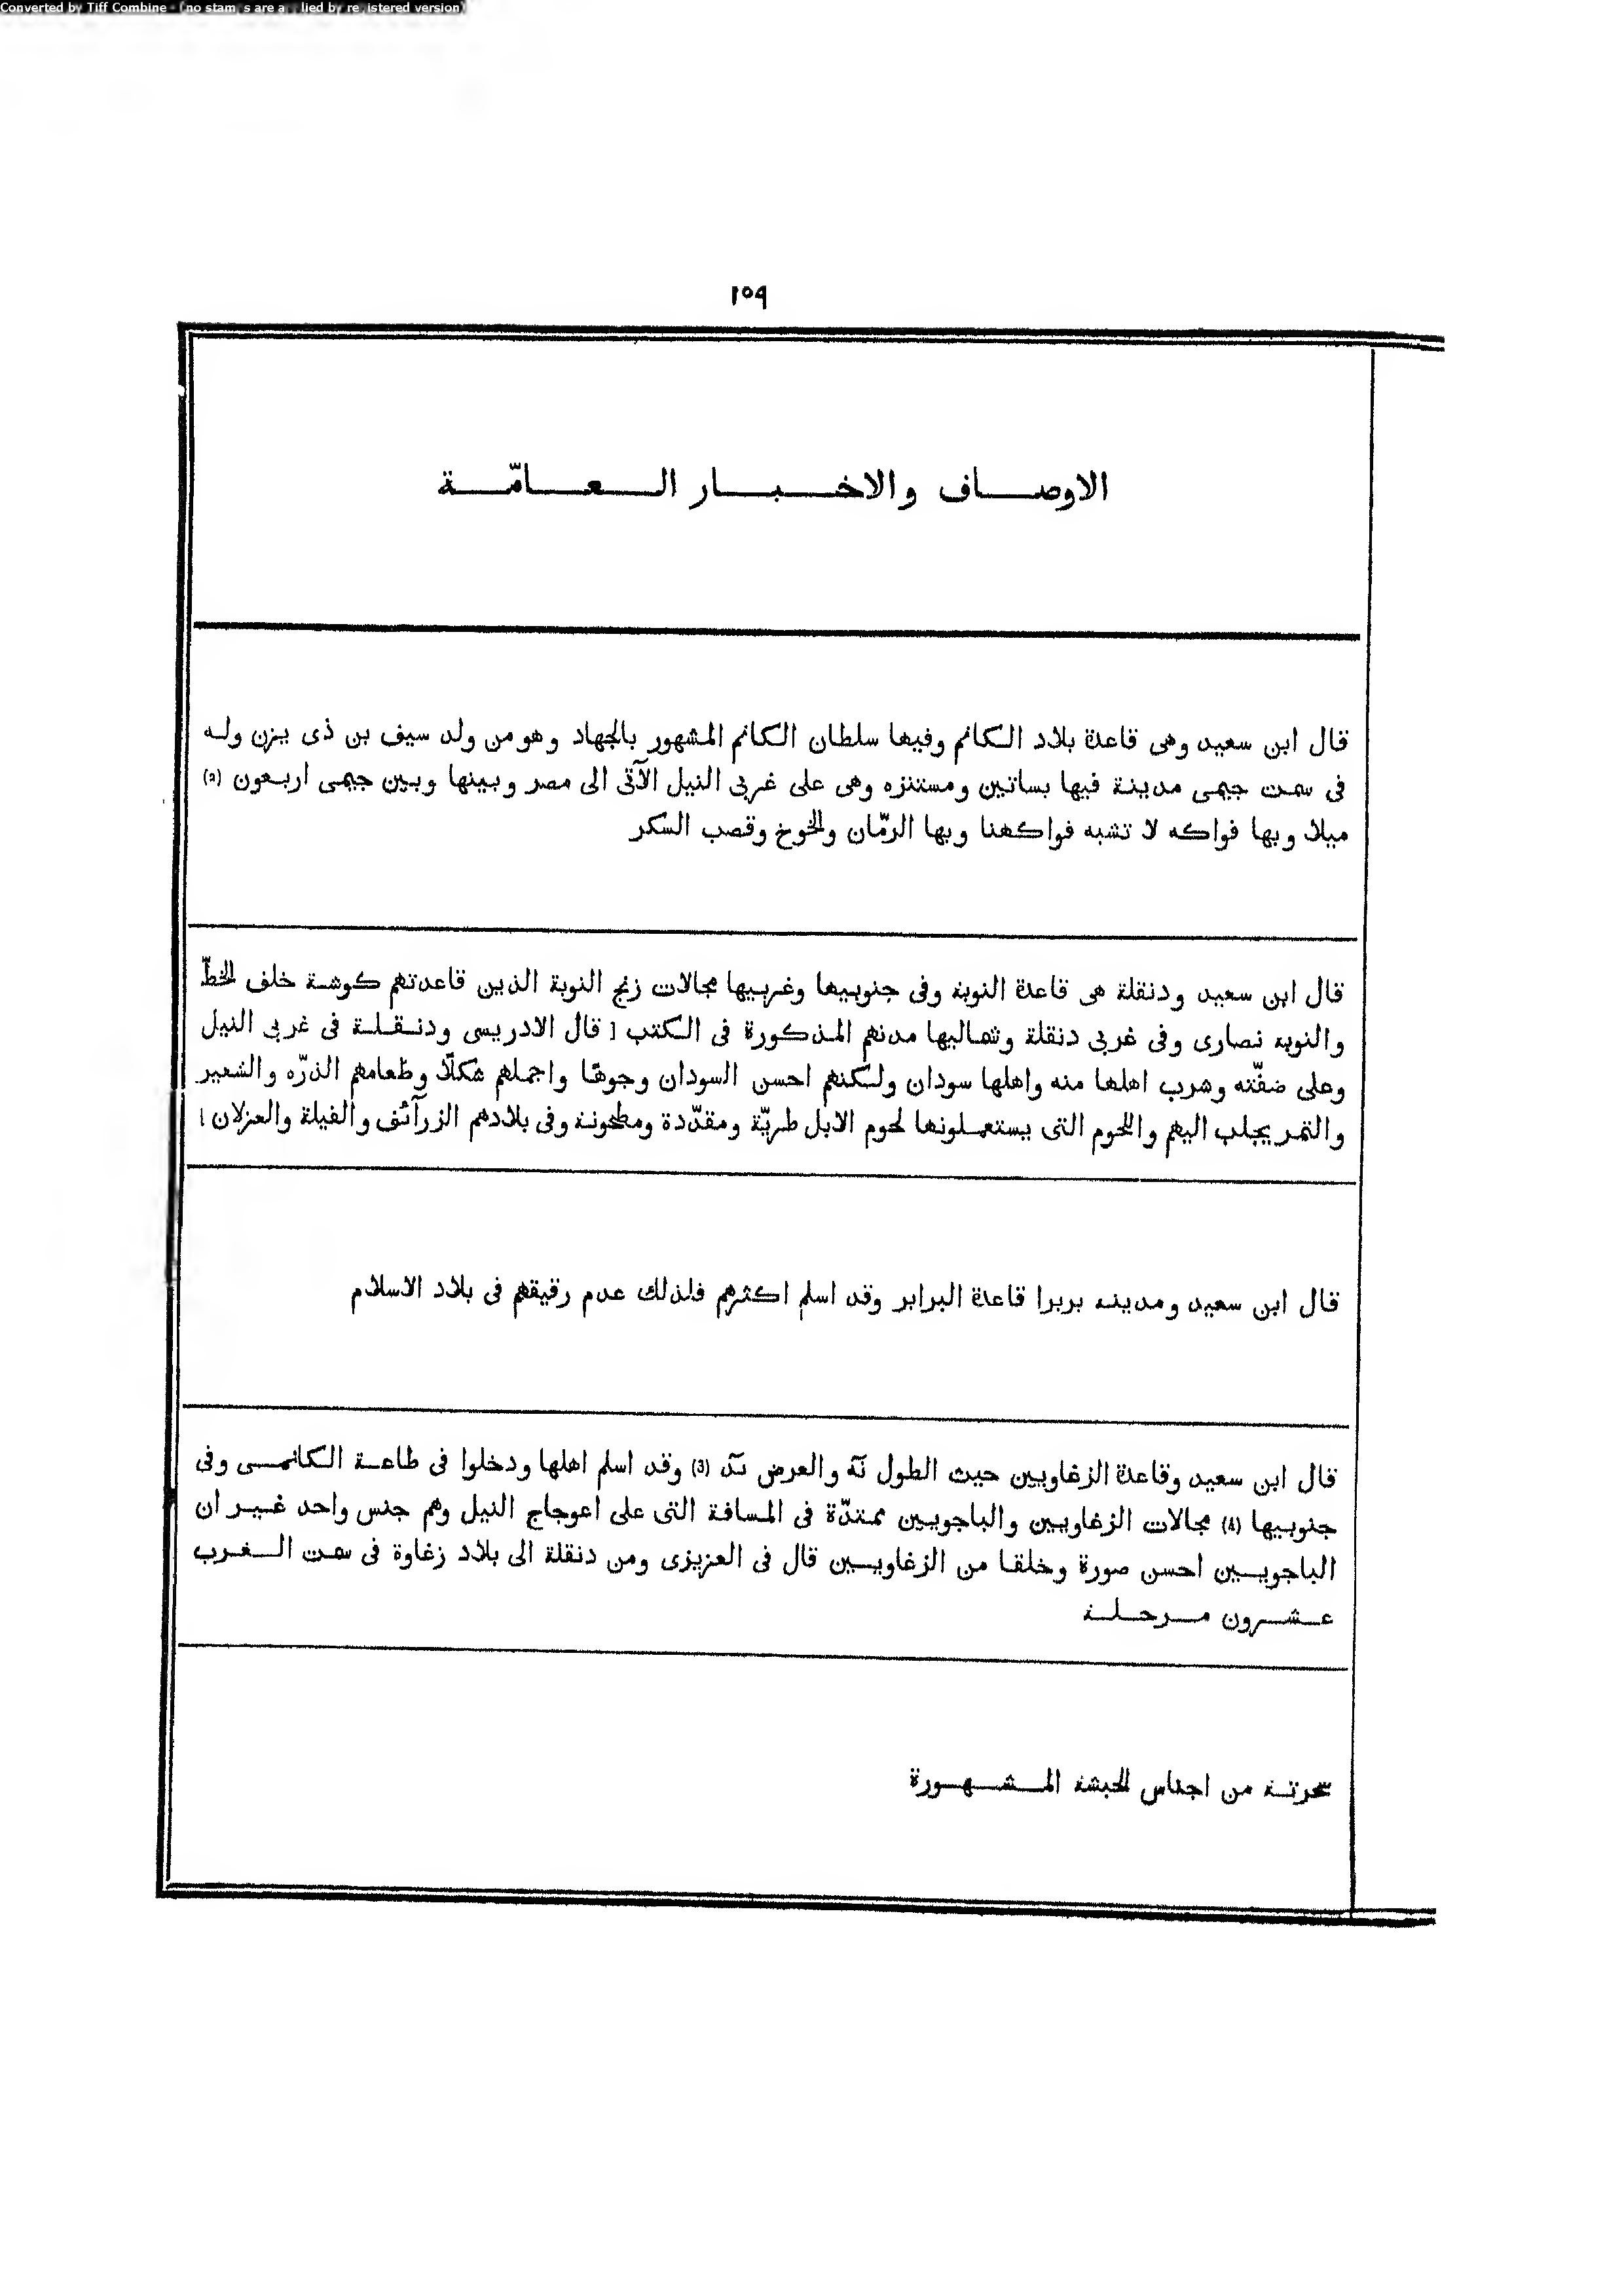 Converted by Tiff Combine - (no stamps are applied by registered version)
١٥٩
الاوصاف والاخبار العامّة
قال ابن سعيد وهى قاعدة بلاد الكانم وفيها سلطان الكانم المشهور بالجهاد وهو من ولد سيف بن ذى يزن وله
فى سمت جيمى مدينة فيها بساتين ومستنزه وهى على غربى النيل الآتى الى مصر وبينها وبين جيمى اربعون (٢)
ميلا وبها فواكه لا تشبه فواكهنا وبها الرمّان والخوخ وقصب السكر
قال ابن سعيد ودنقلة هى قاعدة النوبة وفى جنوبيها وغربيها مجالات زنج النوبة الذين قاعدتهم كوشة خلف الخطّ
والنوبه نصارى وفى غربى دنقلة وشماليها مدنهم المذكورة فى الكتب [ قال الادريسى ودنقلة فى غربى النيل
وعلى ضفّته وشرب اهلها منه واهلها سودان ولكنهم احسن السودان وجوهًا واجملهم شكلًا وطعامهم الذرّه والشعير
والتمر يجلب اليهم واللحوم التى يستعملونها لحوم الابل طريّة ومقدّدة ومطحونة وفى بلادهم الزرآئف والفيلة والعزلان ]
قال ابن سعيد ومدينه بربرا قاعدة البرابر وقد اسلم اكثرهم فلذلك عدم رقيقهم فى بلاد الاسلام
قال ابن سعيد وقاعدة الزغاويين حيث الطول نه والعرض يد (3) وقد اسلم اهلها ودخلوا فى طاعة الكانمى وفى
جنوبيها (4) مجالات الزغاويين والباجويين ممتدّة فى المسافة التى على اعوجاج النيل وهم جنس واحد غير ان
الباجويين احسن صورة وخلقا من الزغاويين قال فى العزيزى ومن دنقلة الى بلاد زغاوة فى سمت الغرب
عشرون مرحلة
سحرتة من اجناس الحبشة المشهورة